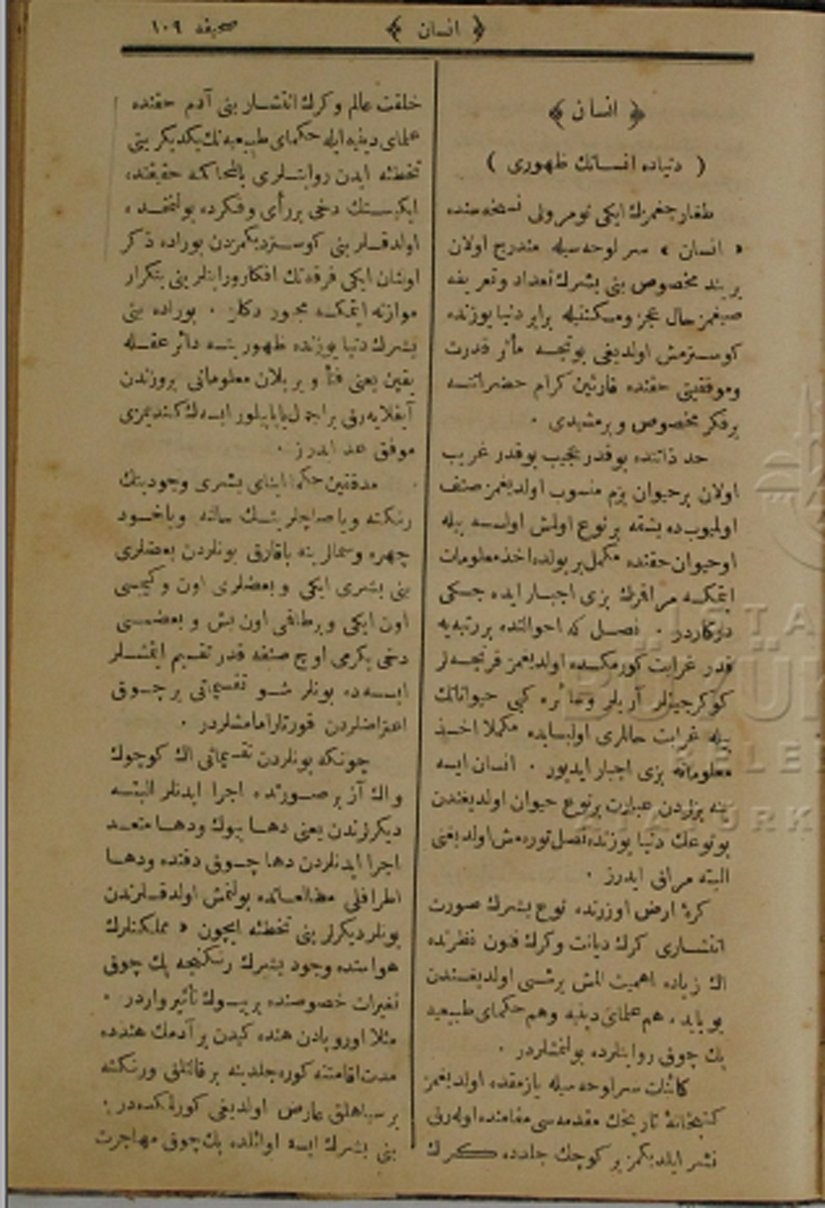 ﴿ انسان ﴾
صحیفه ١٠٩
﴿ انسان ﴾
( دنیاده انسانك ظهوری )
طغارجغمزك ایكی نومرولی نسخه‌سنده
« انسان » سرلوحه‌سیله مندرج اولان
بر بند مخصوص بنی بشرك تعداد و تعریفه
صیغمز حال عجز و مسكنتیله برابر دنیا یوزنده
كوسترمش اولدیغی بونجه مآثر قدرت
و موفقیتی حقنده قارئین كرام حضراتنه
بر فكر مخصوص ویرمشیدی .
حد ذاتنده بو قدر عجیب بو قدر غریب
اولان بر حیوان بزم منسوب اولدیغمز صنف
اولمیوب ده بشقه بر نوع اولمش اولسه بیله
او حیوان حقنده مكمل بر یولده اخذ معلومات
ایتمكه مراقمزك بزی اجبار ایده جكی
دركاردر . فصل كه احوالنده بر رتبه‌یه
قدر غرابت كورمكده اولدیغمز قرنجه‌لر
كوكرجینلر آریلر و سائره كبی حیواناتك
بیله غرابت حاللری اولبابده مكملا اخذ
معلوماته بزی اجبار ایدیور . انسان ایسه
ینه بزلردن عبارت بر نوع حیوان اولدیغندن
بو نوعك دنیا یوزنده نصل توره‌مش اولدیغنی
البته مراق ایدرز .
كرهٔ ارض اوزرنده نوع بشرك صورت
انتشاری كرك دیانت و كرك فنون نظرنده
اك زیاده اهمیت المش بر شی اولدیغندن
بو بابده هم علمای دینیه و هم حكمای طبیعیه
پك چوق روایتلرده بولنمشلردر .
كائنات سرلوحه‌سیله یازمقده اولدیغمز
كتبخانهٔ تاریخك مقدمه‌سی مقامنده اوله‌رق
نشر ایلدیكمز بر كوچك جلدده كرك
خلقت عالم و كرك انتشار بنی آدم حقنده
علمای دینیه ایله حكمای طبیعیه‌نك یكدیكرینی
تخطئه ایدن روایتلری بالمحاكمه حقیقتده
ایكیسنك دخی بر رأی و فكرده بولنمقده
اولدقلرینی كوستردیكمزدن بوراده ذكر
اولنان ایكی فرقه‌نك افكار و روایتلرینی بتكرار
موازنه ایتمكه مجبور دكلز . بوراده بنی
بشرك دنیا یوزنده ظهورینه دائر عقله
یقین یعنی فناً ویریلان معلوماتی بروزندن
آیقلایه‌رق بر اجمال یاپابیلور ایسه‌ك كندیمزی
موفق عد ایدرز .
مدققین حكما ابنای بشری وجودینك
رنكنه ویا صاچلرینك سائه ویاخود
چهره و سمالرینه باقارق بونلردن بعضلری
بنی بشری ایكی و بعضلری اون و كیمسی
اون ایكی و بر طاقمی اون بش و بعضیسی
دخی یكرمی اوچ صنفه قدر تقسیم ایتمشلر
ایسه‌ده بونلر شو تقسیماتی بر چوق
اعتراضلردن قورتارامامشلردر .
چونكه بونلردن تقسیماتی اك كوچوك
و اك آز بر صورتده اجرا ایدنلر البته
دیكرلرندن یعنی دها بیوك و دها متعدد
اجرا ایدنلردن دها چوق دقتده و دها
اطرافلی مطالعاتده بولنمش اولدقلرندن
بونلر دیكرلرینی تخطئه ایچون « مملكتلرك
هواسنده وجود بشرك رنكنجه پك چوق
تغیرات خصوصنده بر بیوك تأثیر واردر .
مثلا اوروپادن هنده كیدن بر آدمك هندده
مدت اقامتنه كوره جلدینه بر قالنلق و رنكنه
بر سیاهلق عارض اولدیغی كورلمكده‌در .
بنی بشرك ایسه اوائلده پك چوق مهاجرت